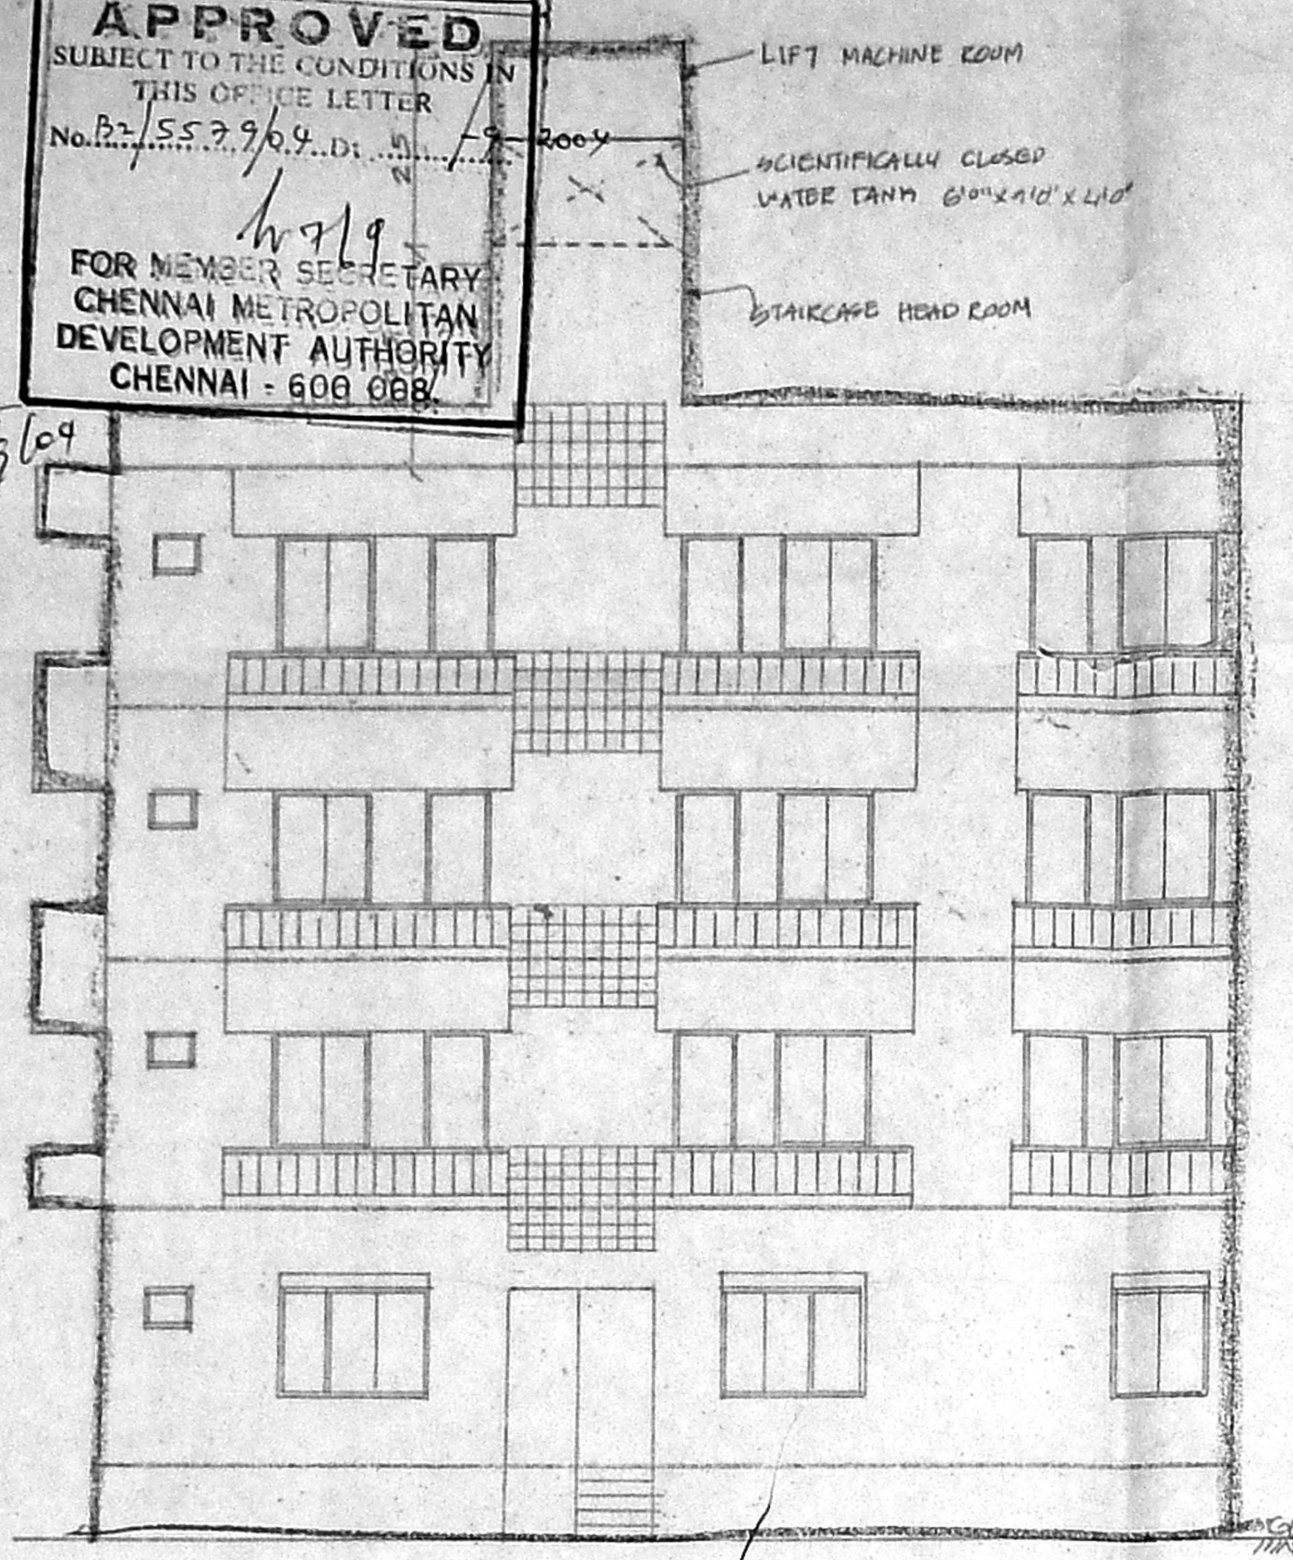 APPROVED
SUBJECT TO THE CONDITIONS IN
THIS OFFICE LETTER
No. B2/5579/04 Dt -9-2004
7/9
FOR MEMBER SECRETARY
CHENNAI METROPOLITAN
DEVELOPMENT AUTHORITY
CHENNAI - 600 008.
/04
LIFT MACHINE ROOM
SCIENTIFICALLY CLOSED
WATER TANK 6'0" x
STAIRCASE HEAD ROOM